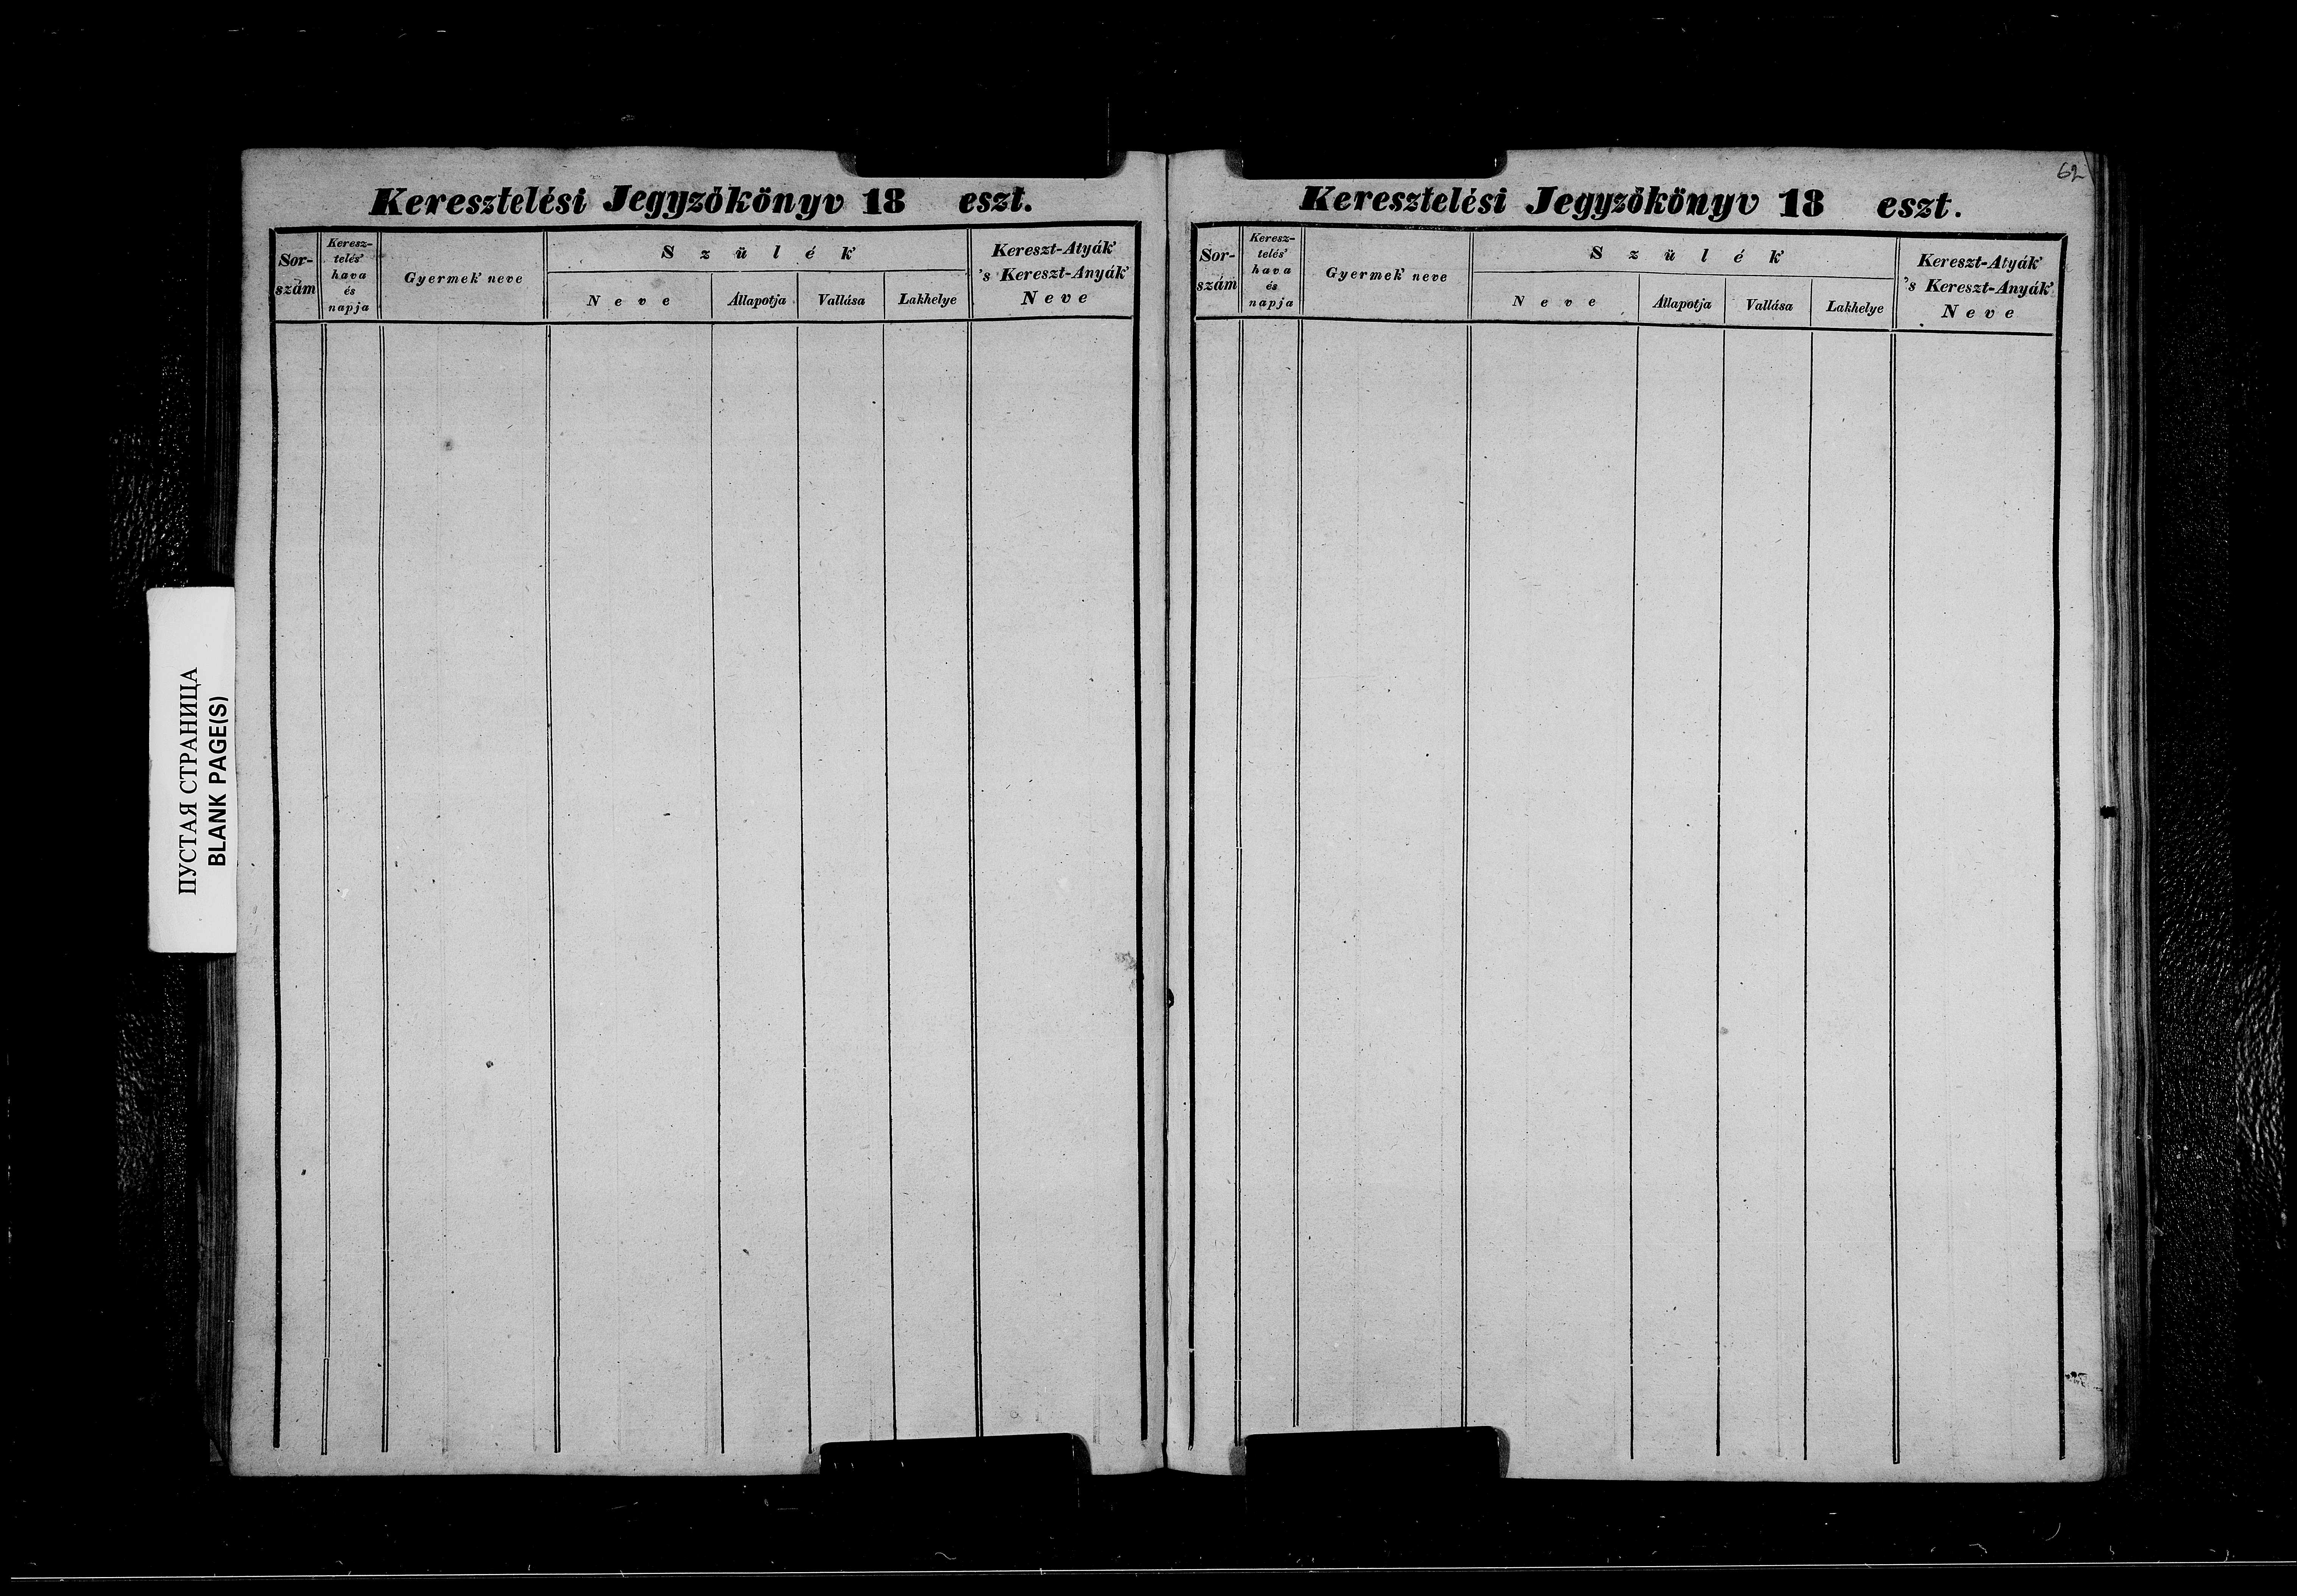 ПУСТАЯ СТРАНИЦА
BLANK PAGE(S)
Keresztelési Jegyzőkönyv 18 eszt.
Sor-
szám
Keresz-
telés'
hava
és
napja
Gyermek' neve
Szülék'
Neve
Állapotja
Vallása
Lakhelye
Kereszt-Atyák'
's Kereszt-Anyák'
Neve
62
Keresztelési Jegyzőkönyv 18 eszt.
Sor-
szám
Keresz-
telés'
hava
és
napja
Gyermek' neve
Szülék'
Neve
Állapotja
Vallása
Lakhelye
Kereszt-Atyák'
's Kereszt-Anyák'
Neve